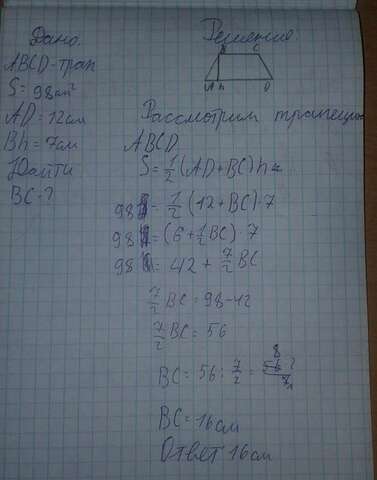 Дано:
ABCD-трап
S = 98см²
AD = 12см
Bh = 7см
Найти
BC = ?
Решение:
B C
A h D
Рассмотрим трапецию
ABCD
S = 1/2 (AD + BC) h
98 = 1/2 (12 + BC) · 7
98 = (6 + 1/2 BC) · 7
98 = 42 + 7/2 BC
7/2 BC = 98 - 42
7/2 BC = 56
BC = 56 : 7/2 = 56 · 2 / 7
8
1
BC = 16см
Ответ 16см